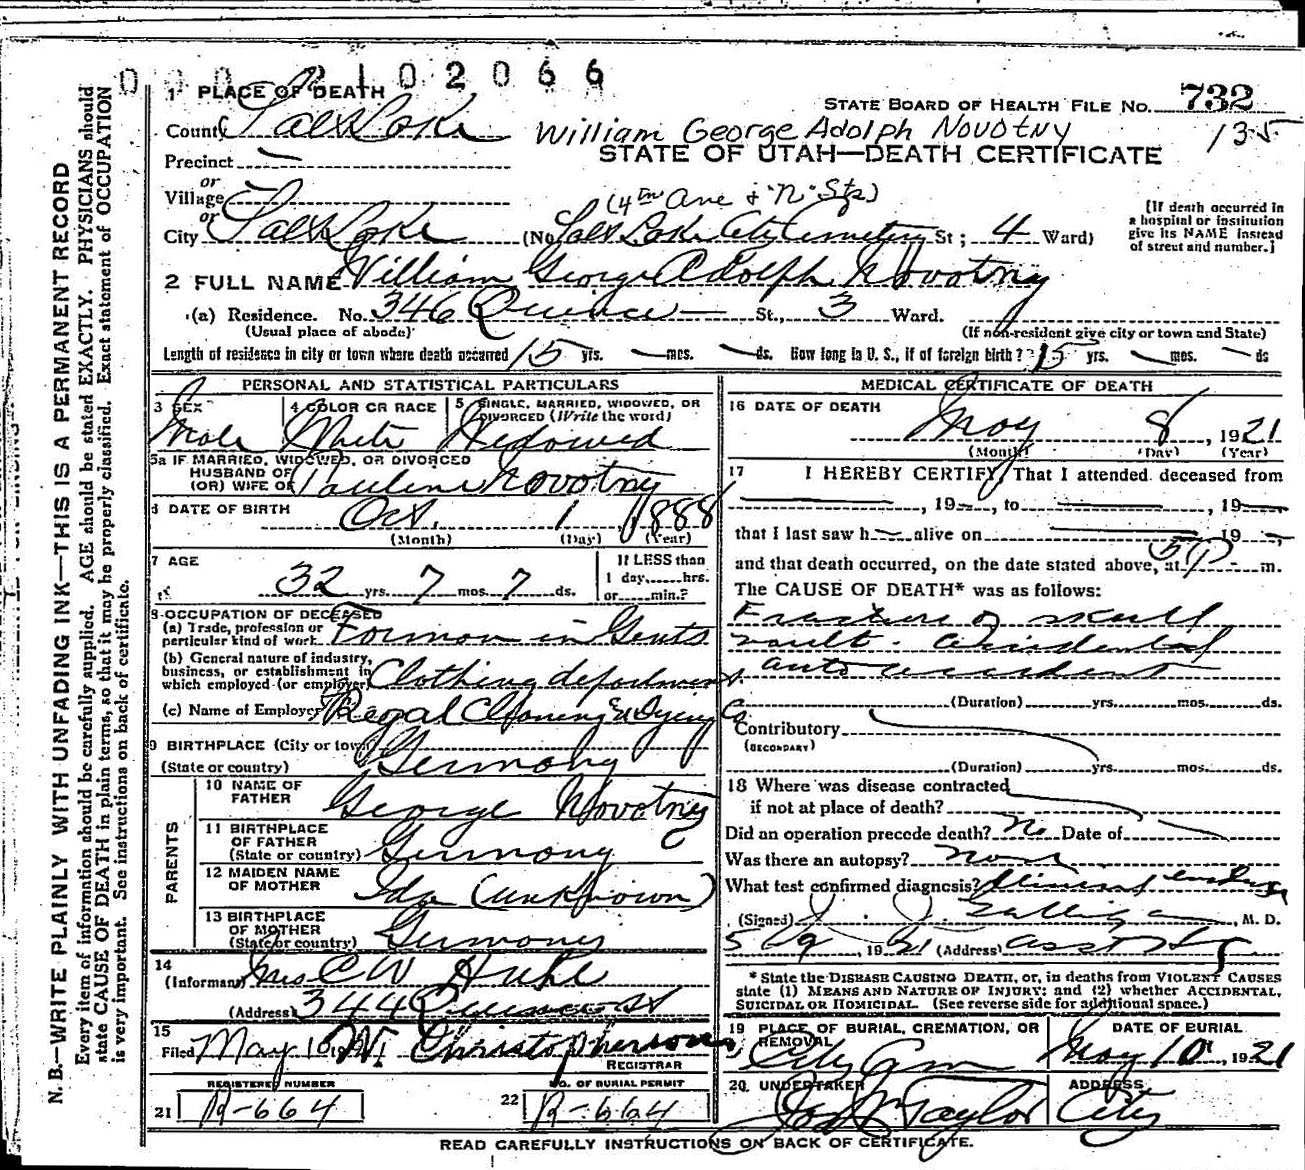 0 0 0 2 1 0 2 0 6 6
1 PLACE OF DEATH
STATE BOARD OF HEALTH FILE NO. 732
County Salt Lake
William George Adolph Novotny
135
STATE OF UTAH—DEATH CERTIFICATE
Precinct —
or
Village —
(4th Ave & "N" Sts)
or
City Salt Lake (No Salt Lake City Cemetery St; 4 Ward)
[If death occurred in
a hospital or institution
give its NAME instead
of street and number.]
2 FULL NAME William George Adolph Novotny
(a) Residence. No. 346 Quince — St., 3 Ward.
(Usual place of abode)
(If non-resident give city or town and State)
Length of residence in city or town where death occurred 15 yrs. — mos. — ds. How long in U. S., if of foreign birth? 15 yrs. — mos. — ds
PERSONAL AND STATISTICAL PARTICULARS
3 SEX
4 COLOR OR RACE
5 SINGLE, MARRIED, WIDOWED, OR
DIVORCED (Write the word)
Male White Widowed
5a IF MARRIED, WIDOWED, OR DIVORCED
HUSBAND OF
(OR) WIFE OF Pauline Novotny
6 DATE OF BIRTH Oct. 1 1888
(Month) (Day) (Year)
7 AGE
If LESS than
1 day,......hrs.
or......min.?
32 yrs. 7 mos. 7 ds.
8 OCCUPATION OF DECEASED
(a) Trade, profession or
particular kind of work Forman in Gents
(b) General nature of industry,
business, or establishment in
which employed (or employer) Clothing department
(c) Name of Employer Regal Cleaning & Dying Co
9 BIRTHPLACE (City or town)
(State or country) Germany
PARENTS
10 NAME OF
FATHER George Novotney
11 BIRTHPLACE
OF FATHER
(State or country) Germany
12 MAIDEN NAME
OF MOTHER Ida (unknown)
13 BIRTHPLACE
OF MOTHER
(State or country) Germany
14
(Informant) Mrs C W
(Address) 344 Quince St
15
Filed May 10 1921 Christopherson
REGISTRAR
REGISTERED NUMBER
21 R-664
NO. OF BURIAL PERMIT
22 R-664
MEDICAL CERTIFICATE OF DEATH
16 DATE OF DEATH
May 8, 1921
(Month) (Day) (Year)
17 I HEREBY CERTIFY, That I attended deceased from
—, 19—, to —, 19—
that I last saw h— alive on — 19—,
and that death occurred, on the date stated above, at 5 P. m.
The CAUSE OF DEATH* was as follows:
Fracture of skull
vault - accidental
auto accident
(Duration) yrs. mos. ds.
Contributory
(SECONDARY)
(Duration) yrs. mos. ds.
18 Where was disease contracted
if not at place of death?
Did an operation precede death? No Date of —
Was there an autopsy? None
What test confirmed diagnosis?
(Signed) J. J. Galligan, M. D.
5/9, 1921 (Address) Asst
* State the DISEASE CAUSING DEATH, or, in deaths from VIOLENT CAUSES
state (1) MEANS AND NATURE OF INJURY; and (2) whether ACCIDENTAL,
SUICIDAL OR HOMICIDAL. (See reverse side for additional space.)
19 PLACE OF BURIAL, CREMATION, OR
REMOVAL
City Cem
DATE OF BURIAL
May 10, 1921
20 UNDERTAKER
Jos Wm Taylor
ADDRESS
City
READ CAREFULLY INSTRUCTIONS ON BACK OF CERTIFICATE.
N. B.—WRITE PLAINLY WITH UNFADING INK—THIS IS A PERMANENT RECORD
Every item of information should be carefully supplied. AGE should be stated EXACTLY. PHYSICIANS should
state CAUSE OF DEATH in plain terms, so that it may be properly classified. Exact statement of OCCUPATION
is very important. See instructions on back of certificate.